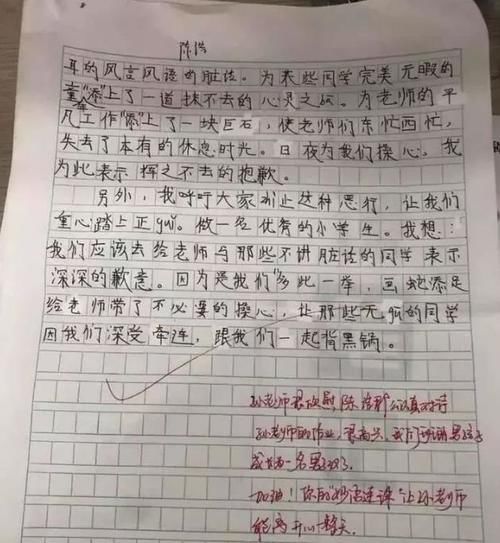 陈浩
耳的风言风语的脏话。为某些同学完美无暇的
童年"添"上了一道抹不去的心灵之
。为老师的平
凡工作"添"上了一块巨石,使老师们东忙西忙,
失去了本有的休息时光。日夜为我们操心,我
为此表示挥之不去的抱歉。
另外,我呼吁大家制止这种恶行,让我们
重心踏上正guǐ。做一名优秀的小学生。我想:
我们应该去给老师与那些不讲脏话的同学表示
深深的歉意。因为是我们"多此一举,画蛇添足
给老师带了不必要的操心,让那些无gū的同学
因我们深受牵连,跟我们一起背黑锅。
孙老师很欣慰,陈浩能认真对待
孙老师的作业,很高兴,我们班
男孩子
成为一名男子汉了。
加油!你的"妙语连珠"让孙老师
能高开心一整天。